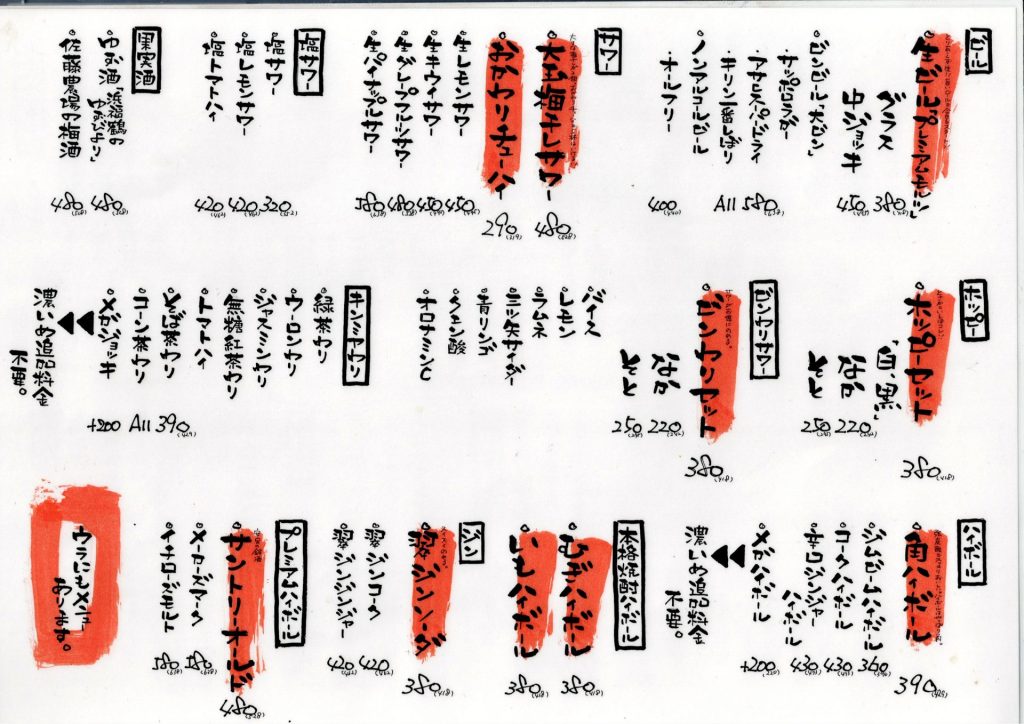 ビール
生ビール「プレミアムモルツ」
グラス 380(418)
中ジョッキ 450(495)
ビンビール「大ビン」
・サッポロラガー
・アサヒスーパードライ
・キリン一番しぼり
All 580(638)
ノンアルコールビール
・オールフリー 400(440)
サワー
480(528)
おかわりチューハイ 290(319)
生レモンサワー 450(495)
生キウイサワー 450(495)
生グレープフルーツサワー 480(528)
生パイナップルサワー 580(638)
塩サワー
塩サワー 320(352)
塩レモンサワー 420(462)
塩トマトハイ 420(462)
果実酒
ゆず酒「浜福鶴の
ゆずどすえ」 480(528)
佐藤農場の梅酒 480(528)
ホッピー
ホッピーセット 380(418)
"白・黒"
なか 220(242)
そと 250(275)
ビンワリサワー
ビンワリセット 380(418)
なか 220(242)
そと 250(275)
バイス
レモン
ラムネ
三ツ矢サイダー
青リンゴ
クエン酸
オロナミンC
キンミヤワリ
緑茶ワリ
ウーロンワリ
ジャスミンワリ
無糖紅茶ワリ
トマトハイ
そば茶ワリ
コーン茶ワリ
All 390(429)
メガジョッキ +200
濃いめ追加料金
不要。
ハイボール
角ハイボール 390(429)
ジムビームハイボール 360(396)
コークハイボール 430(473)
辛口ジンジャー
ハイボール 430(473)
メガハイボール +200(220)
濃いめ追加料金
不要。
本格焼酎ハイボール
むぎハイボール 380(418)
いもハイボール 380(418)
ジン
翠ジンソーダ 380(418)
翠ジンコーク 420(462)
翠ジンジンジャー 420(462)
プレミアムハイボール
サントリーオールド 480(528)
メーカーズマーク 580(638)
イチローズモルト 580(638)
ウラにもメニュー
あります。